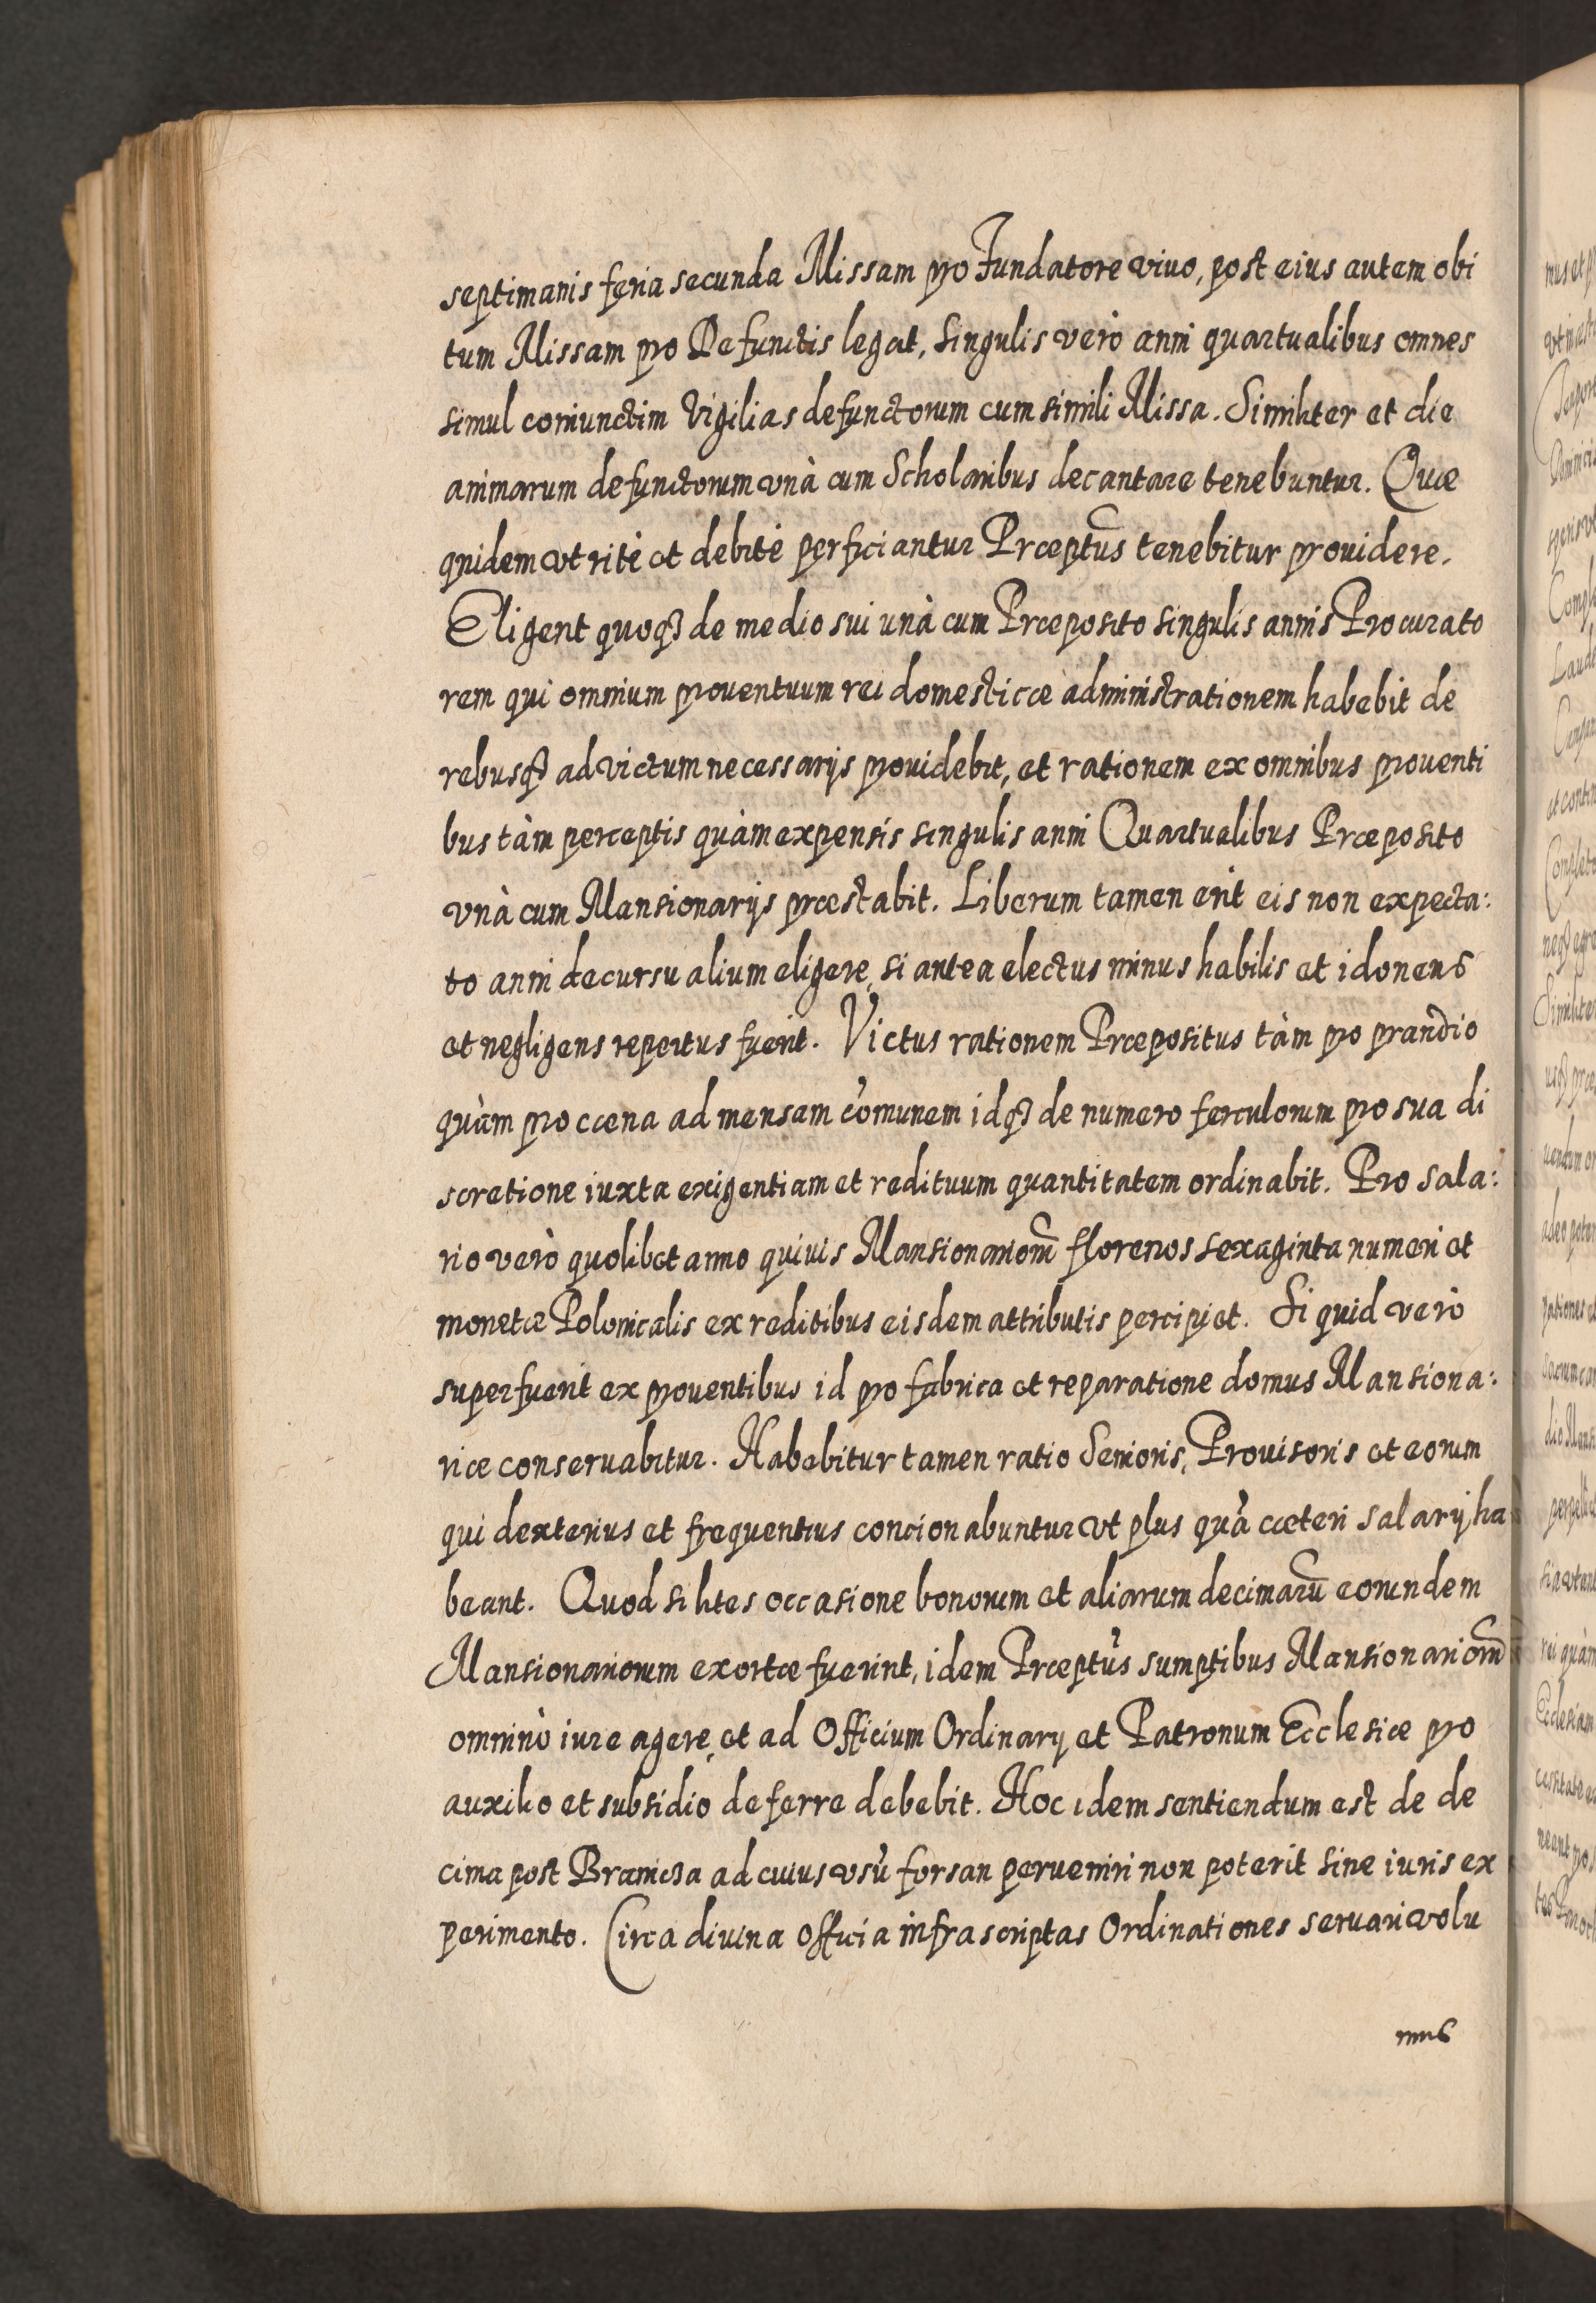 septimanis feria secunda Missam pro Fundatore viuo, post eius autem obi
tum Missam pro Defunctis legat, Singulis verò anni quartualibus omnes
simul coniunctim Vigilias defunctorum cum simili Missa. Similiter et die
animarum defunctorum vnà cum Scholaribus decantare tenebuntur. Quæ
quidem vt ritè et debitè perficiantur Præptus tenebitur prouidere.
Eligent quoqȝ de medio sui unà cum Præposito singulis annis Procurato
rem qui omnium prouentuum rei domesticæ administrationem habebit de
rebusqȝ ad victum necessarijs prouidebit, et rationem ex omnibus prouenti
bus tàm perceptis quàm expensis singulis anni Quartualibus Præposito
vnà cum Mansionarijs præstabit. Liberum tamen erit eis non expecta:
to anni decursu alium eligere, si antea electus minus habilis et idoneus
et negligens repertus fuerit. Victus rationem Præpositus tàm pro prandio
quàm pro cœna ad mensam com̃unem idqȝ de numero ferculorum pro sua di
scretione iuxta exigentiam et redituum quantitatem ordinabit. Pro sala:
rio verò quolibet anno quiuis Mansionariorũ florenos sexaginta numeri et
monetæ Polonicalis ex reditibus eisdem attributis percipiet. Si quid verò
superfuerit ex prouentibus id pro fabrica et reparatione domus Mansiona:
riæ conseruabitur. Habebitur tamen ratio Senioris, Prouisoris et eorum
qui dexterius et frequentius concionabuntur vt plus quà cæteri salarij ha
beant. Quod si lites occasione bonorum et aliarum decimarũ eorundem
Mansionariorum exortæ fuerint, idem Præptus sumptibus Mansionariorũ
omninò iure agere, et ad Officium Ordinarij et Patronum Ecclesiæ pro
auxilio et subsidio deferre debebit. Hoc idem sentiendum est de de
cima post Branicza ad cuius vsũ forsan perueniri non poterit sine iuris ex
perimento. Circa diuina Officia infrascriptas Ordinationes seruari volu
mus